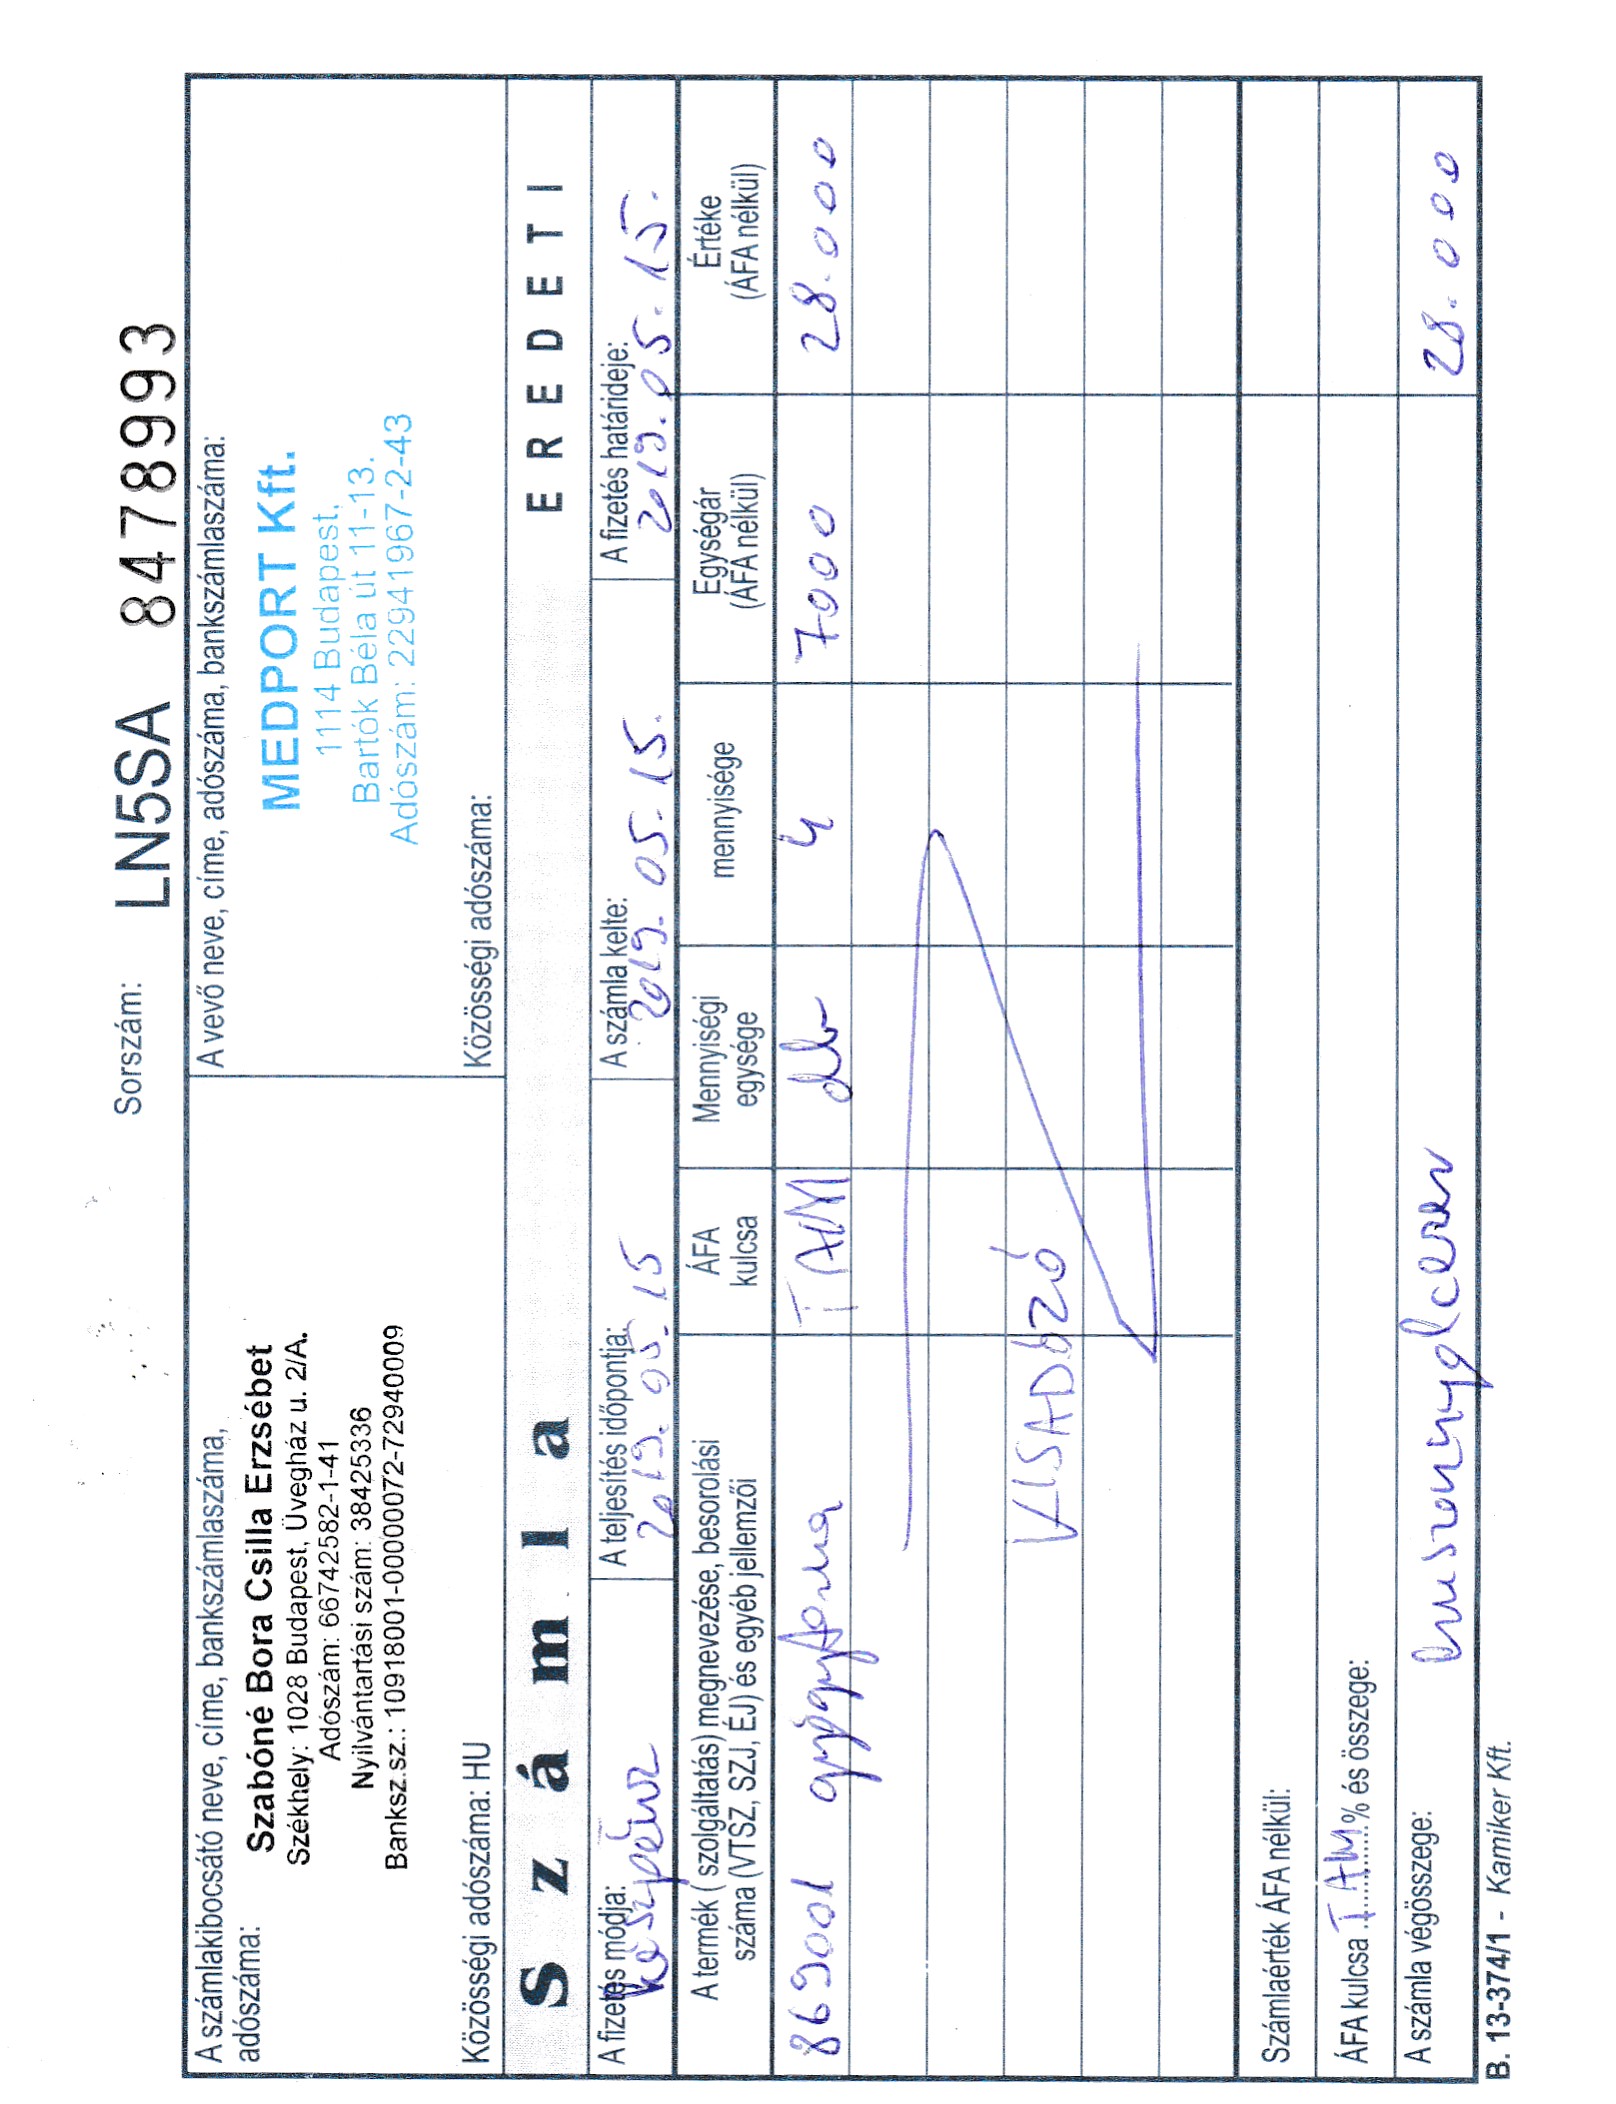 Sorszám: LN5SA 8478993
A számlakibocsátó neve, címe, bankszámlaszáma,
adószáma:
Szabóné Bora Csilla Erzsébet
Székhely: 1028 Budapest, Üvegház u. 2/A.
Adószám: 66742582-1-41
Nyilvántartási szám: 38425336
Banksz.sz.: 10918001-00000072-72940009
Közösségi adószáma: HU
A vevő neve, címe, adószáma, bankszámlaszáma:
MEDPORT Kft.
1114 Budapest,
Bartók Béla út 11-13.
Adószám: 22941967-2-43
Közösségi adószáma:
Számla EREDETI
A fizetés módja:
készpénz
A teljesítés időpontja:
2019. 05. 15
A számla kelte:
2019. 05. 15.
A fizetés határideje:
2019. 05. 15.
A termék ( szolgáltatás) megnevezése, besorolási
száma (VTSZ, SZJ, ÉJ) és egyéb jellemzői
ÁFA
kulcsa
Mennyiségi
egysége
mennyisége
Egységár
(ÁFA nélkül)
Értéke
(ÁFA nélkül)
869001 gyógytorna TAM db 4 7000 28.000
KISADÓZÓ
Számlaérték ÁFA nélkül:
ÁFA kulcsa TAM % és összege:
A számla végösszege: huszonnyolcezer 28.000
B. 13-374/1 - Kamiker Kft.